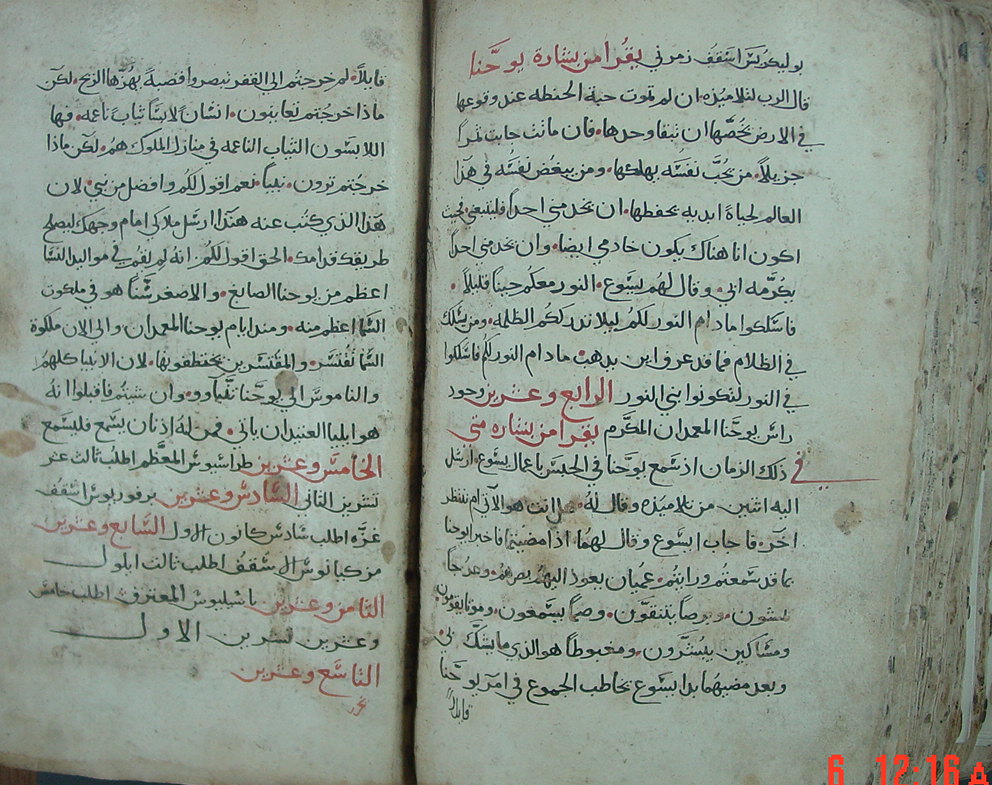 بوليكربس اسقف زمرني يقرا من بشارة يوحنا
قال الرب لتلاميذه ان لم تموت حبة الحنطه عند وقوعها
في الارض تخصها ان تبقا وحدها فان ماتت جابت ثمرا
جزيلا من يحب نفسه يهلكها ومن يبغض نفسه في هذا
العالم لحياة ابديه يحفظها ان يخدمني احدا فليتبعني فحيث
اكون انا هناك يكون خادمي ايضا وان يخدمني احدا
يكرمه ابي وقال لهم يسوع النور معكم حينا قليلا
فاسلكوا مادام النور لكم ليلا تدرككم الظلمه ومن يسلك
في الظلام فما قد عرف اين يدهب مادام النور لكم فاسلكوا
في النور لتكونوا بني النور الرابع وعشرين وجود
راس يوحنا المعمدان المكرم يقرا من بشاره متي
في ذلك الزمان اذ سمع يوحنا في الحبس باعمال يسوع ارسل
اليه اثنين من تلاميذه وقال له هل انت هو الآتي ام ننتظر
آخر فاجاب ايسوع وقال لهما اذا مضيتما فاخبرا يوحنا
بما قد سمعتم ورايتم عميان يعود اليهم بصرهم وعرجا
يمشون وبرصا يتنقون وصما يسمعون وموتا يقومون
ومساكين يبشرون ومغبوطا هو الذي ما يشك بي
وبعد مضيهما بدا يسوع يخاطب الجموع في امر يوحنا
قايلا
قايلا لم خرجتم الى القفر تبصروا قصبة يهزها الريح لكن
ماذا خرجتم تعاينون انسان لابسا ثياب ناعمه فها
اللابسون الثياب الناعمه في منازل الملوك هم لكن ماذا
خرجتم ترون نبيا نعم اقول لكم وافضل من نبي لان
هذا الذي كتب عنه هنذا ارسل ملاكي امام وجهك ليصلح
طريقك قدامك الحق اقول لكم انه لم يقم في مواليد النسا
اعظم من يوحنا الصابغ والاصغر سنا هو في ملكوت
السما اعظم منه ومند ايام يوحنا المعمدان والي الان ملكوة
السما تقتسر والمقتسرين يختطفونها لان الانبيا كلهم
والناموس الي يوحنا تنباوو وان شيتم فاقبلوا انه
هو ايليا العتيدان ياتي فمن له اذنان يسمع فليسمع
الخامس وعشرين طراسيوس المعظم اطلب ثالث عشر
تشرين الثاني السادس وعشرين برفوريوس اسقف
غزه اطلب سادس كانون الاول السابع وعشرين
مركيانوس الاسقف اطلب ثالث ايلول
الثامن وعشرين باسيليوس المعترف اطلب خامس
وعشرين تشرين الاول
التاسع وعشرين